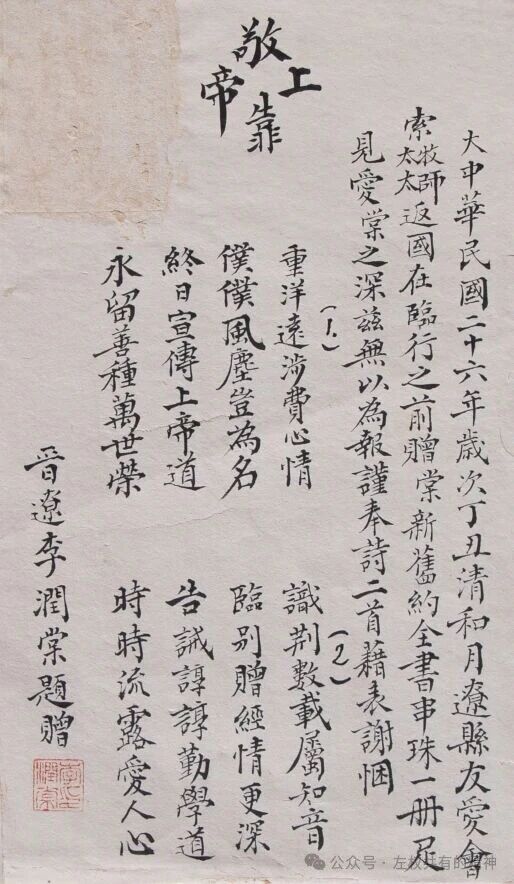 敬靠上帝
大中華民國二十六年歲次丁丑清和月遼縣友愛會
索牧師太太返國在臨行之前贈棠新舊約全書串珠一冊足
見愛棠之深茲無以為報謹奉詩二首藉表謝悃
(1.)
重洋遠涉費心情
僕僕風塵豈為名
終日宣傳上帝道
永留善種萬世榮
(2.)
識荆數載屬知音
臨別贈經情更深
告誡諄諄勤學道
時時流露愛人心
晉遼李潤棠題贈
李潤棠
公众号·左权共有的精神